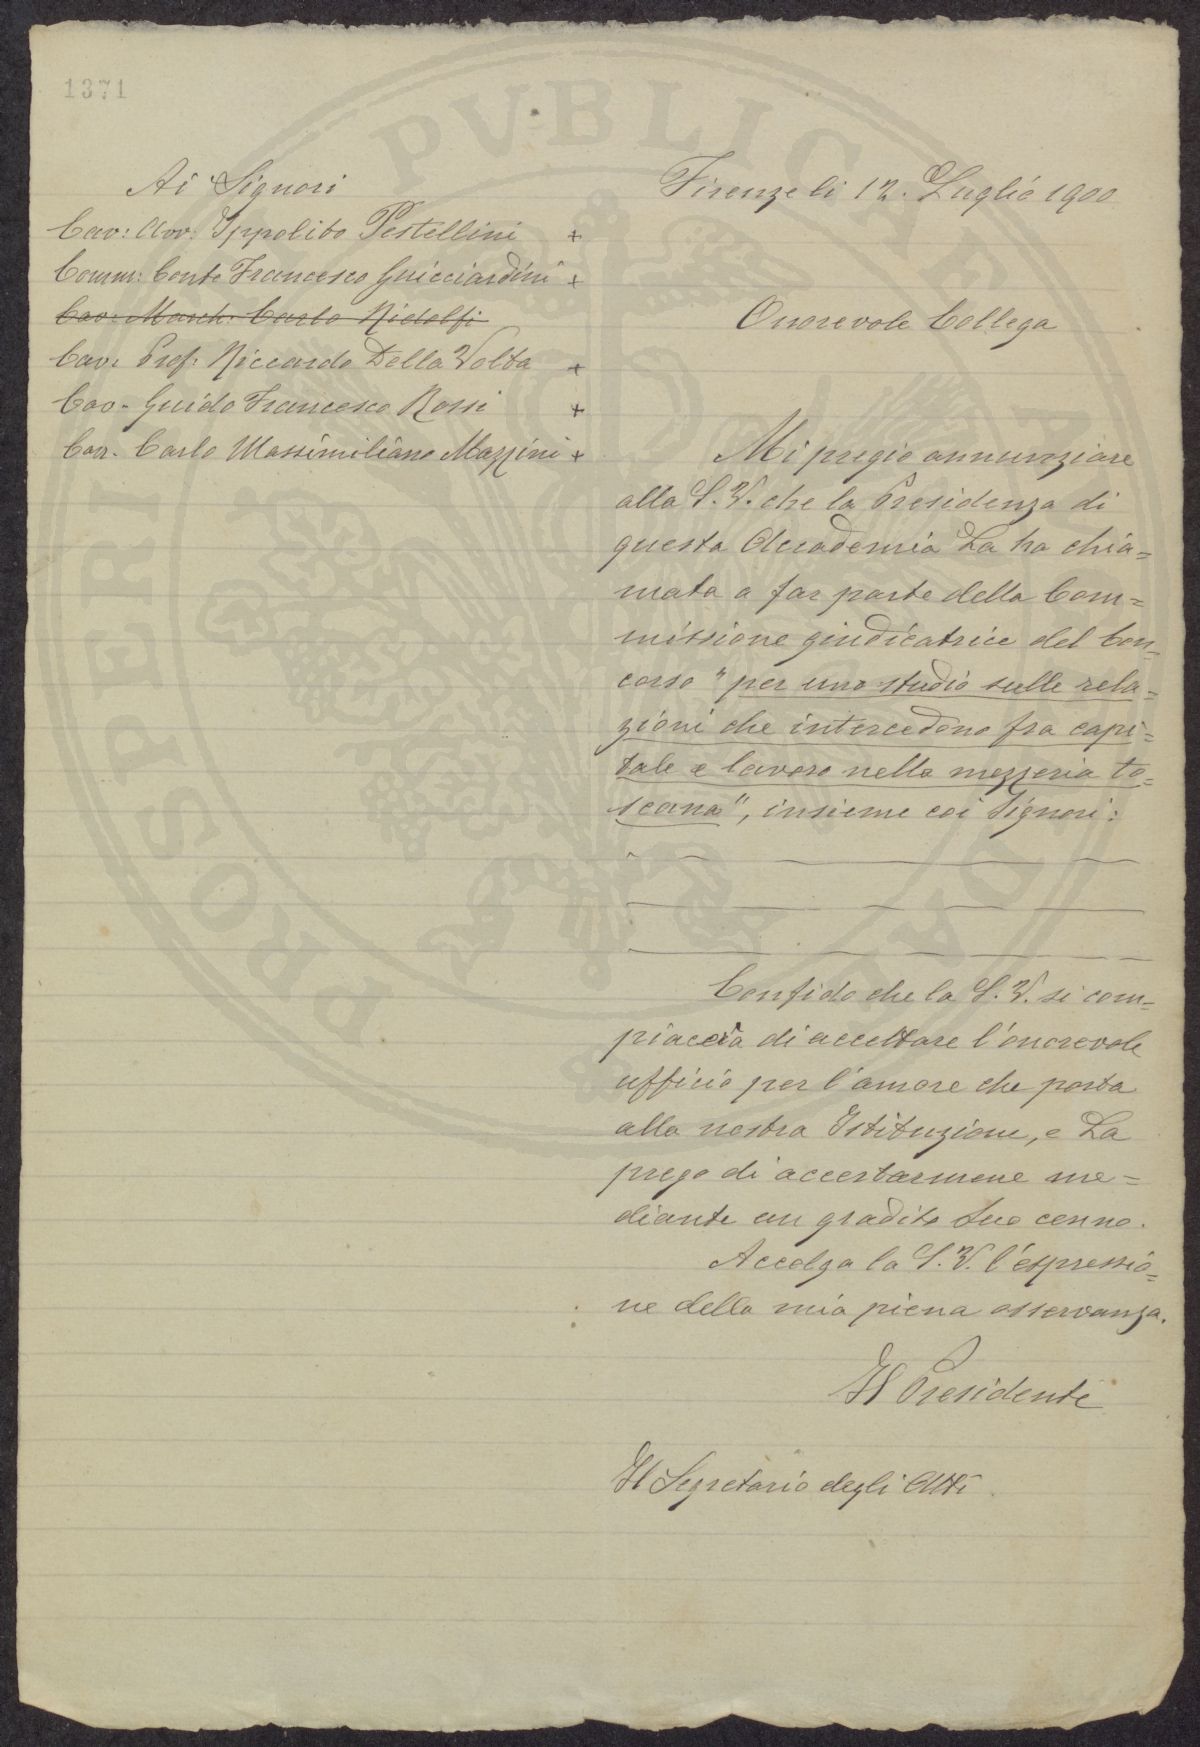 1371
PVBLICAE
PROSPERITATI
Ai Signori
Cav: Avv: Ippolito Pestellini +
Comm: Conte Francesco Guicciardini +
Cav: March: Carlo Ridolfi
Cav: Prof: Riccardo Della Volta +
Cav. Guido Francesco Rossi +
Cav. Carlo Massimiliano Mazzini +
Firenze li 12. Luglio 1900
Onorevole Collega
Mi pregio annunziare
alla S. V. che la Presidenza di
questa Accademia La ha chia=
mata a far parte della Com=
missione giudicatrice del Con=
corso "per uno studio sulle rela=
zioni che intercedono fra capi=
tale e lavoro nella mezzeria to=
scana", insieme coi Signori:
Confido che la S. V. si com=
piaccia di accettare l'onorevole
ufficio per l'amore che porta
alla nostra Istituzione, e La
prego di accertarmene me=
diante un gradito Suo cenno.
Accolga la S. V. l'espressio=
ne della mia piena osservanza.
Il Presidente
Il Segretario degli Atti